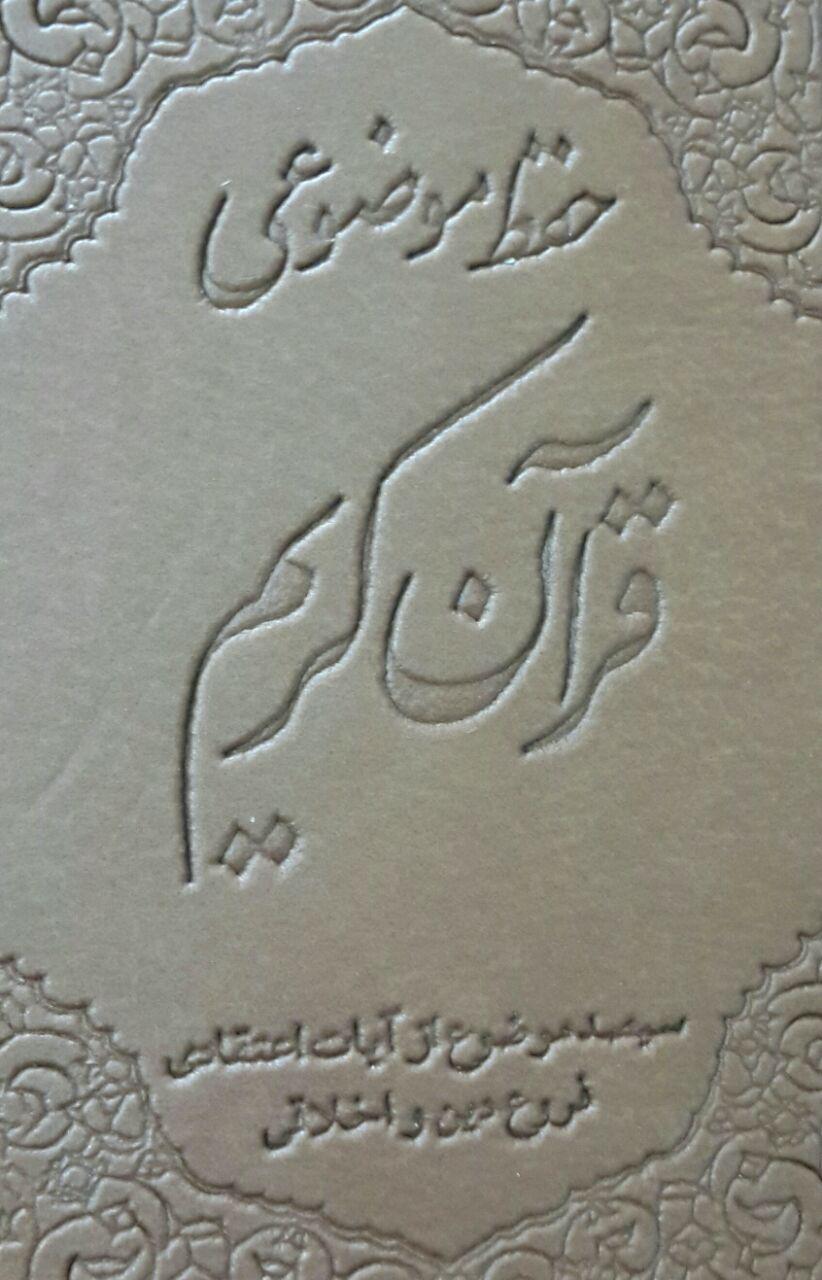 حفظ موضوعی
قرآن کریم
سیصد موضوع از آیات اعتقادی
فروع دین و اخلاقی